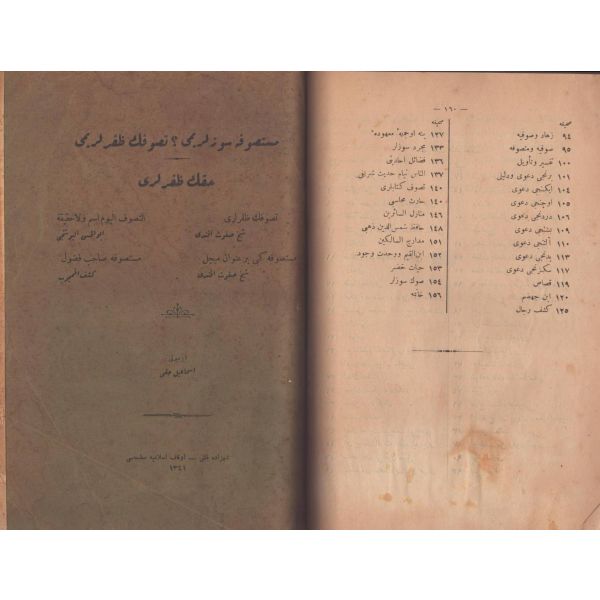 — ١٦٠ —
صحيفه
٩٤ زهاد وصوفيه
٩٥ صوفيه ومتصوفه
١٠٠ تفسير وتأويل
١٠١ برنجى دعوى ودليلى
١٠٤ ايكنجى دعوى
١٠٥ اوچنجى دعوى
١٠٦ دردنجى دعوى
١٠٧ بشنجى دعوى
١١٠ آلتنجى دعوى
١١٣ يدنجى دعوى
١١٧ سكزنجى دعوى
١١٩ قصاص
١٢٠ ابن جهضم
١٢٥ كشف رجال
صحيفه
١٢٧ ينه اوجمله معهوده
١٣٣ مجرد سوزلر
١٣٦ فضائل احاديثى
١٣٧ الناس نيام حديث شريفى
١٤٠ تصوف كتابلرى
١٤٠ حارث محاسبى
١٤٦ منازل السائرين
١٤٨ حافظ شمس الدين ذهبى
١٥١ مدارج السالكين
١٥٢ ابن القيم ووحدت وجود
١٥٣ حيات خضر
١٥٤ صوك سوزلر
١٥٦ خاتمه
مستصوفه سوزلريمى؟ تصوفك ظفرلريمى
حقك ظفرلرى
تصوفك ظفرلرى
شيخ صفوت افندى
التصوف اليوم اسم ولاحقيقة
ابوالحسن البوشنجى
مستصوفه كبى بر عنوان مبجل
شيخ صفوت افندى
مستصوفه صاحب فضول
كشف المحجوب
ازميرلى
اسماعيل حقى
شهزاده باشى — اوقاف اسلاميه مطبعه سى
١٣٤١